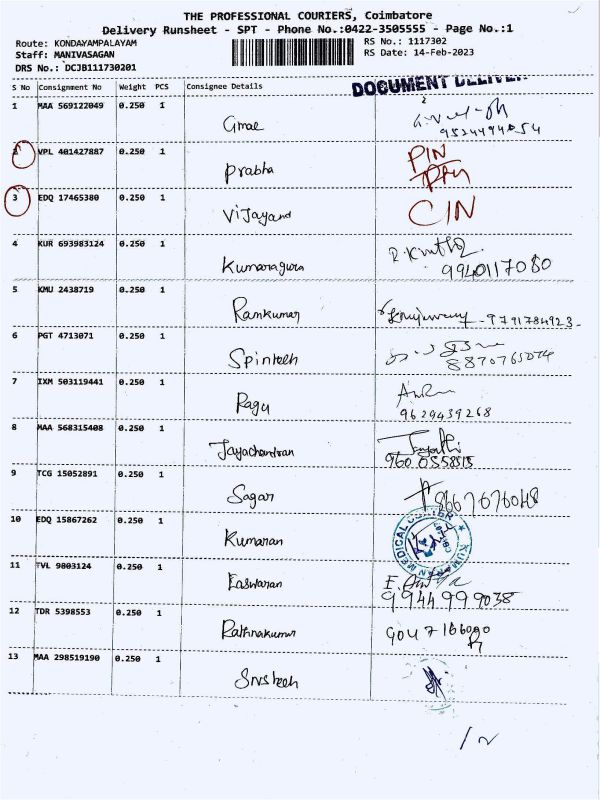 THE PROFESSIONAL COURIERS, Coimbatore
Delivery Runsheet - SPT - Phone No.:0422-3505555 - Page No.:1
Route: KONDAYAMPALAYAM RS No.: 1117302
Staff: MANIVASAGAN RS Date: 14-Feb-2023
DRS No.: DCJB111730201
DOCUMENT
S No Consignment No Weight PCS Consignee Details
1 MAA 569122049 0.250 1
2 VPL 401427887 0.250 1 Prabha PIN
3 EDQ 17465380 0.250 1 Vijayand CIN
4 KUR 693983124 0.250 1 Kumaragura 9940117080
5 KMU 2438719 0.250 1 Ramkumar 9791784923
6 PGT 4713071 0.250 1 Spintech 8870765074
7 IXM 503119441 0.250 1 Ragu 9629439268
8 MAA 568315408 0.250 1 Jayachandran
9 TCG 15052891 0.250 1 Sagar 8667676048
10 EDQ 15867262 0.250 1 Kumaran KUMARAN MEDICAL CENTER
11 TVL 9803124 0.250 1 Easwaran 9944999038
12 TDR 5398553 0.250 1 Rathnakumar
13 MAA 298519190 0.250 1